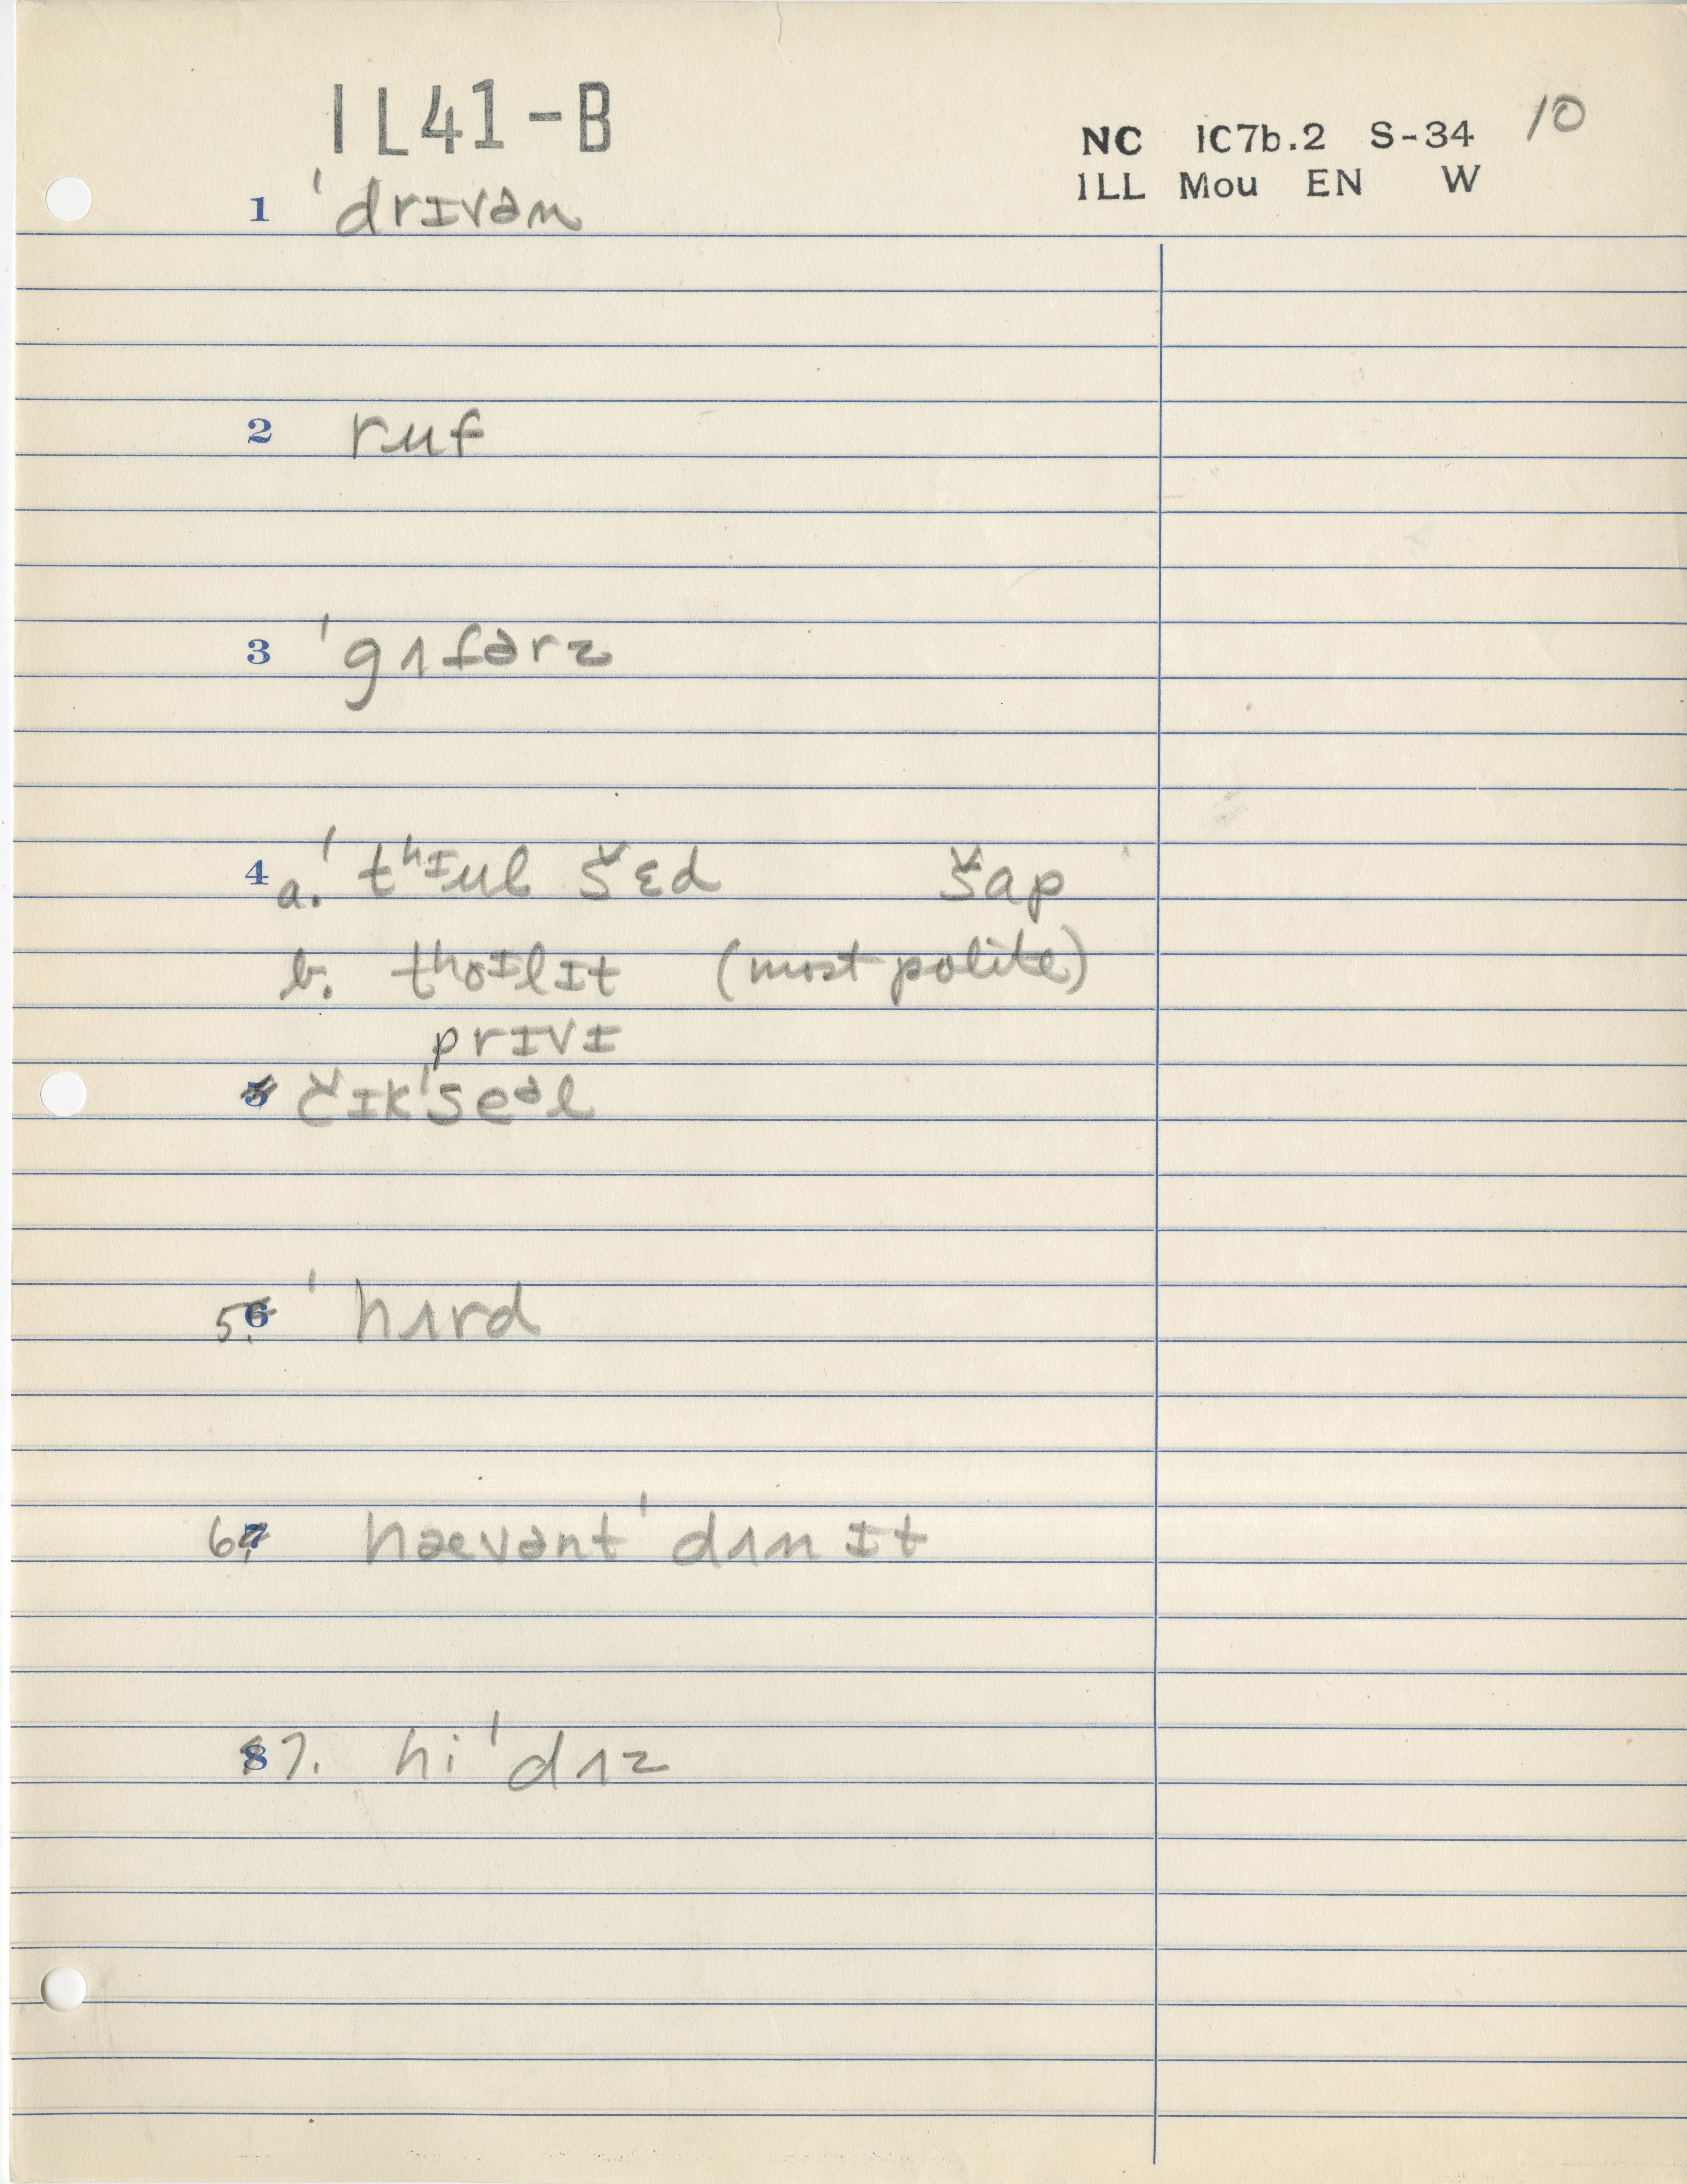 IL41-B
NC IC7b.2 S-34 10
ILL Mou EN W
1 ˈdrɪvən
2 ruf
3 ˈgʌfərz
4 a. ˈtʰɪul šɛd šap
b. tʰoɪlɪt (most polite)
prɪvɪ
5 čɪkˈseəl
5. 6 ˈhʌrd
6. 7 haevənt ˈdʌn ɪt
8 7. hi ˈdʌz